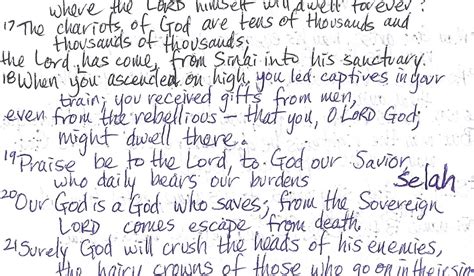 where the LORD himself will dwell forever?
17 The chariots of God are tens of thousands and
thousands of thousands;
the Lord has come from Sinai into his sanctuary.
18 When you ascended on high, you led captives in your
train; you received gifts from men,
even from the rebellious – that you, O LORD God,
might dwell there.
19 Praise be to the Lord, to God our Savior,
who daily bears our burdens Selah
20 Our God is a God who saves; from the Sovereign
LORD comes escape from death.
21 Surely God will crush the heads of his enemies,
the hairy crowns of those who go on in their sins